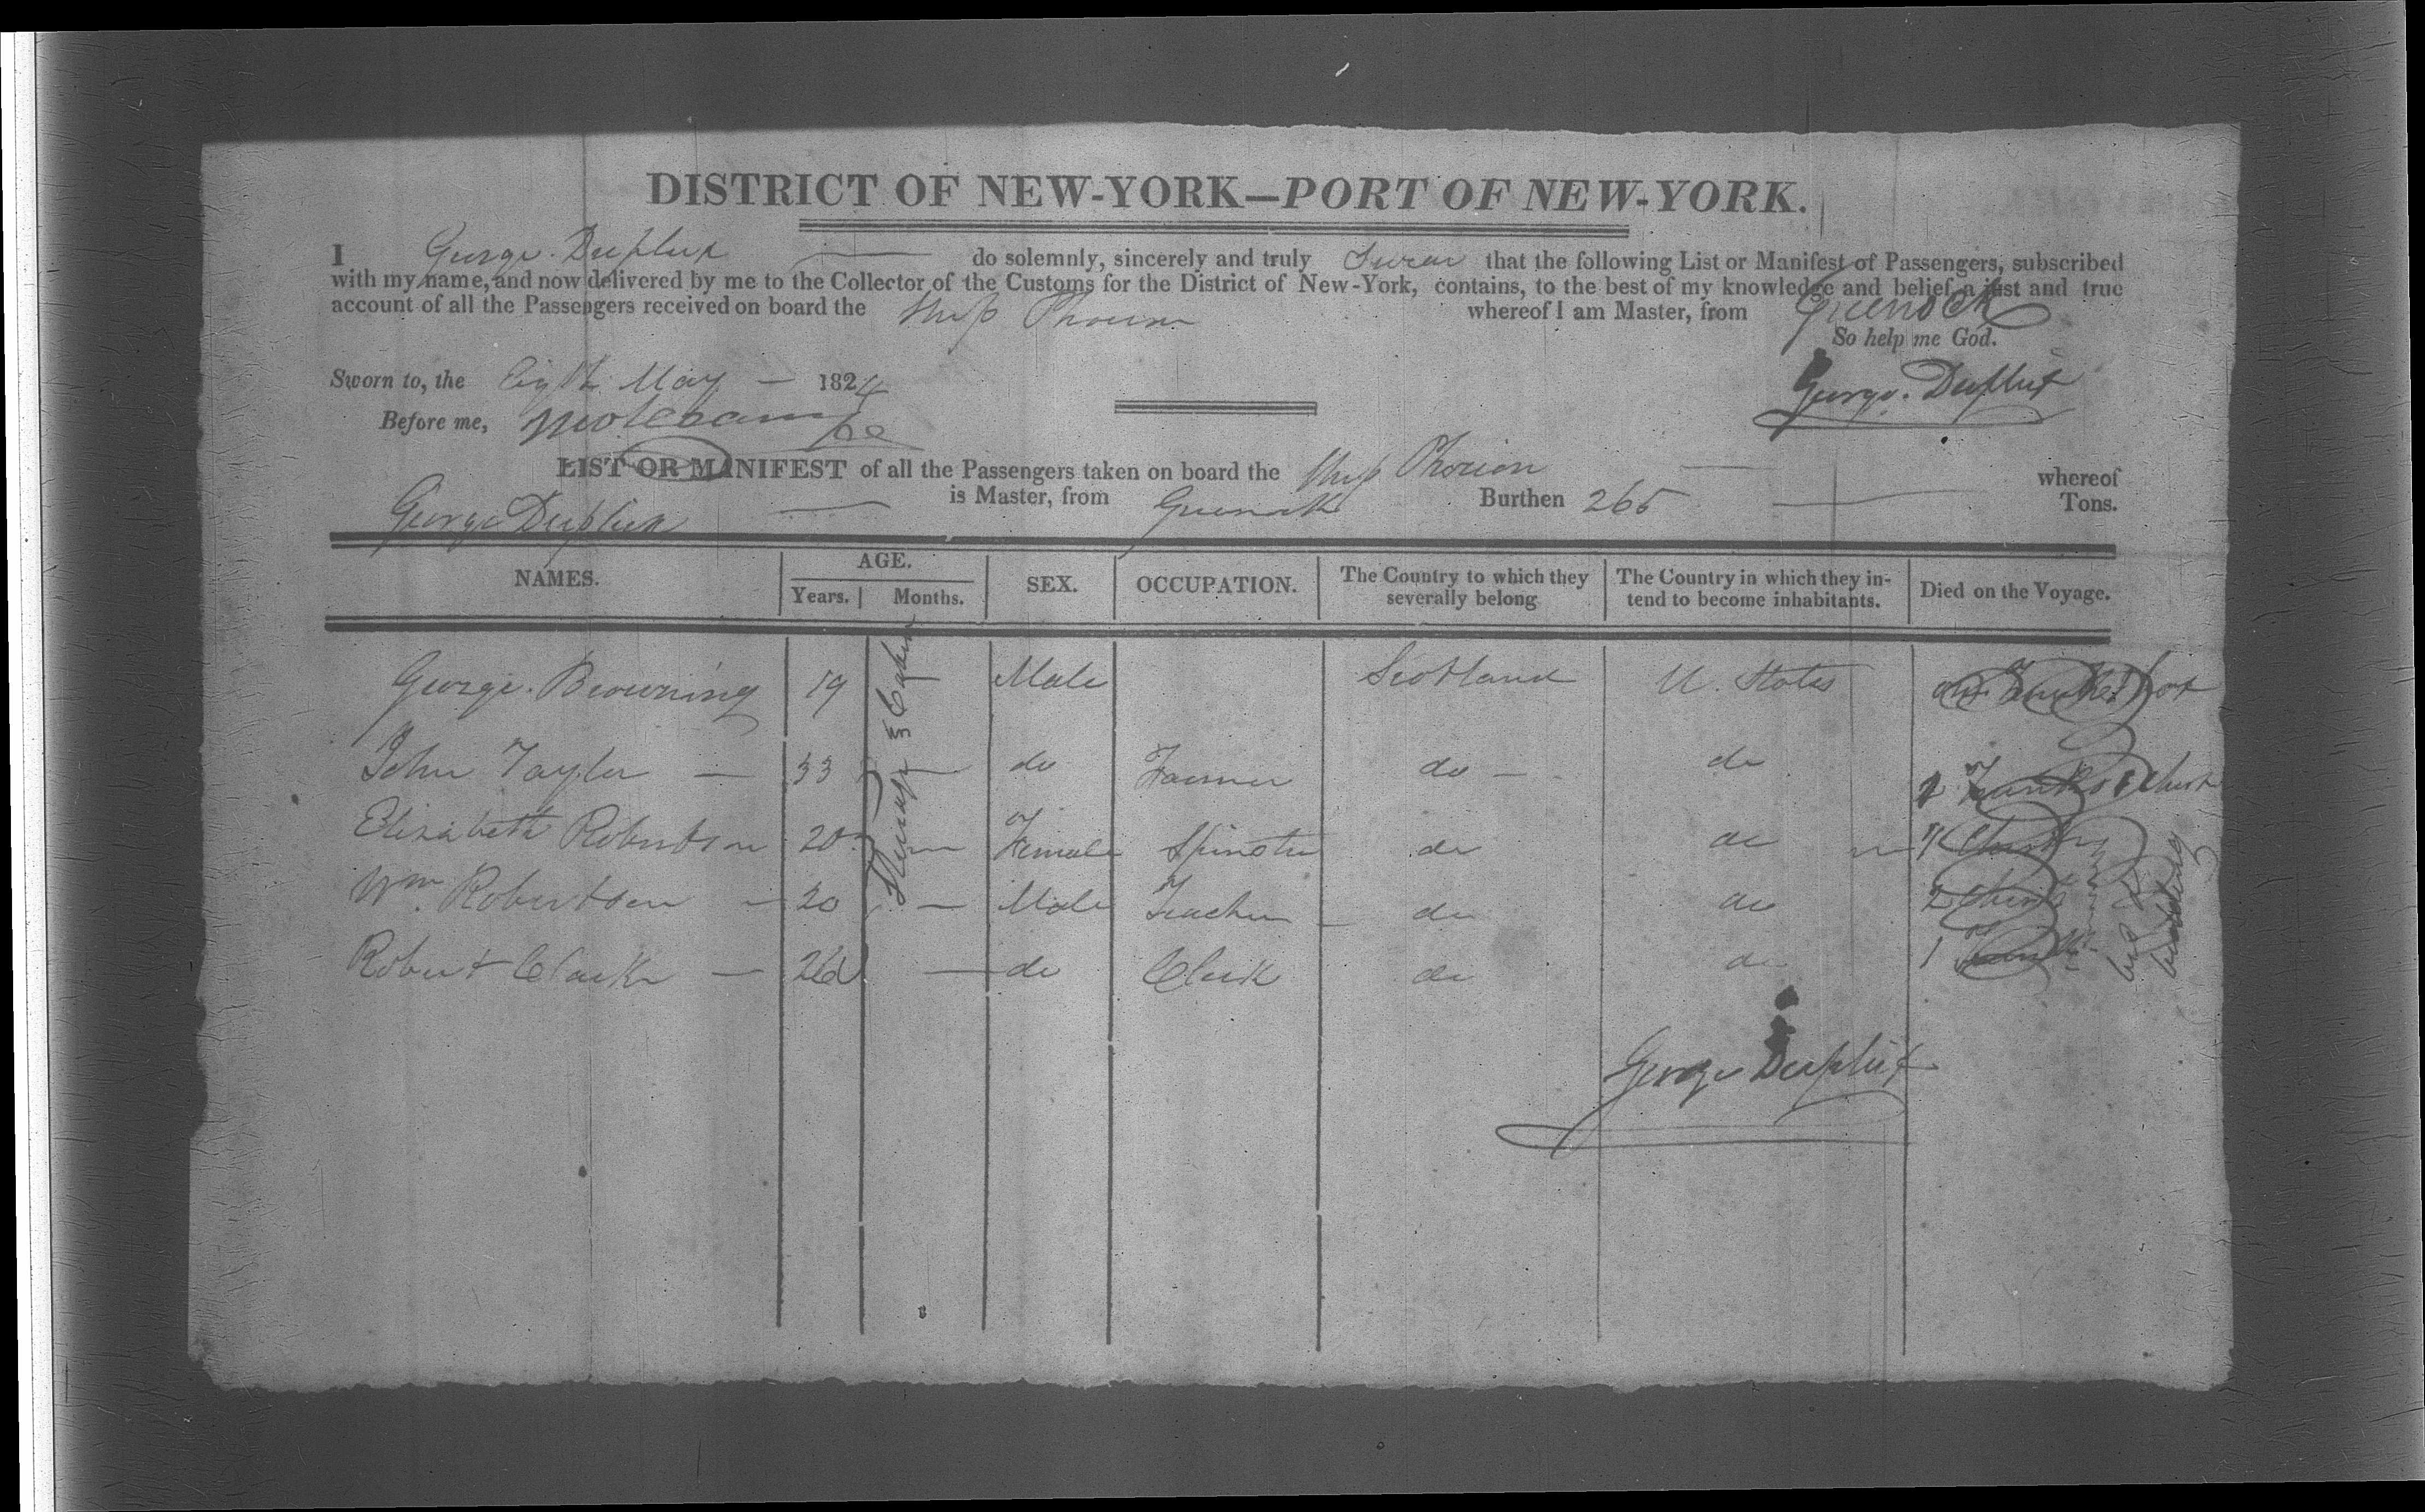 DISTRICT OF NEW-YORK—PORT OF NEW-YORK.
I George Duplex do solemnly, sincerely and truly Swear that the following List or Manifest of Passengers, subscribed
with my name, and now delivered by me to the Collector of the Customs for the District of New-York, contains, to the best of my knowledge and belief, a just and true
account of all the Passengers received on board the Ship Phocion whereof I am Master, from Greenock
So help me God.
Sworn to, the Eigth May — 1824
George Duplex
Before me,
LIST OR MANIFEST of all the Passengers taken on board the Ship Phocion — whereof
George Duplex — is Master, from Greenock Burthen 265 Tons.
NAMES. AGE. Years. Months. SEX. OCCUPATION. The Country to which they severally belong The Country in which they intend to become inhabitants. Died on the Voyage.
George Browning 19 Male Scotland U. States
John Taylor — 33 — do Farmer do — do
Elizabeth Robertson 20 — Female Spinster do do
Wm Robertson — 20 — Male Teacher — do do
Robert Clark — 26 — do Clerk do do 1
Steerage
5 Cabin
bed &
bedding
George Duplex